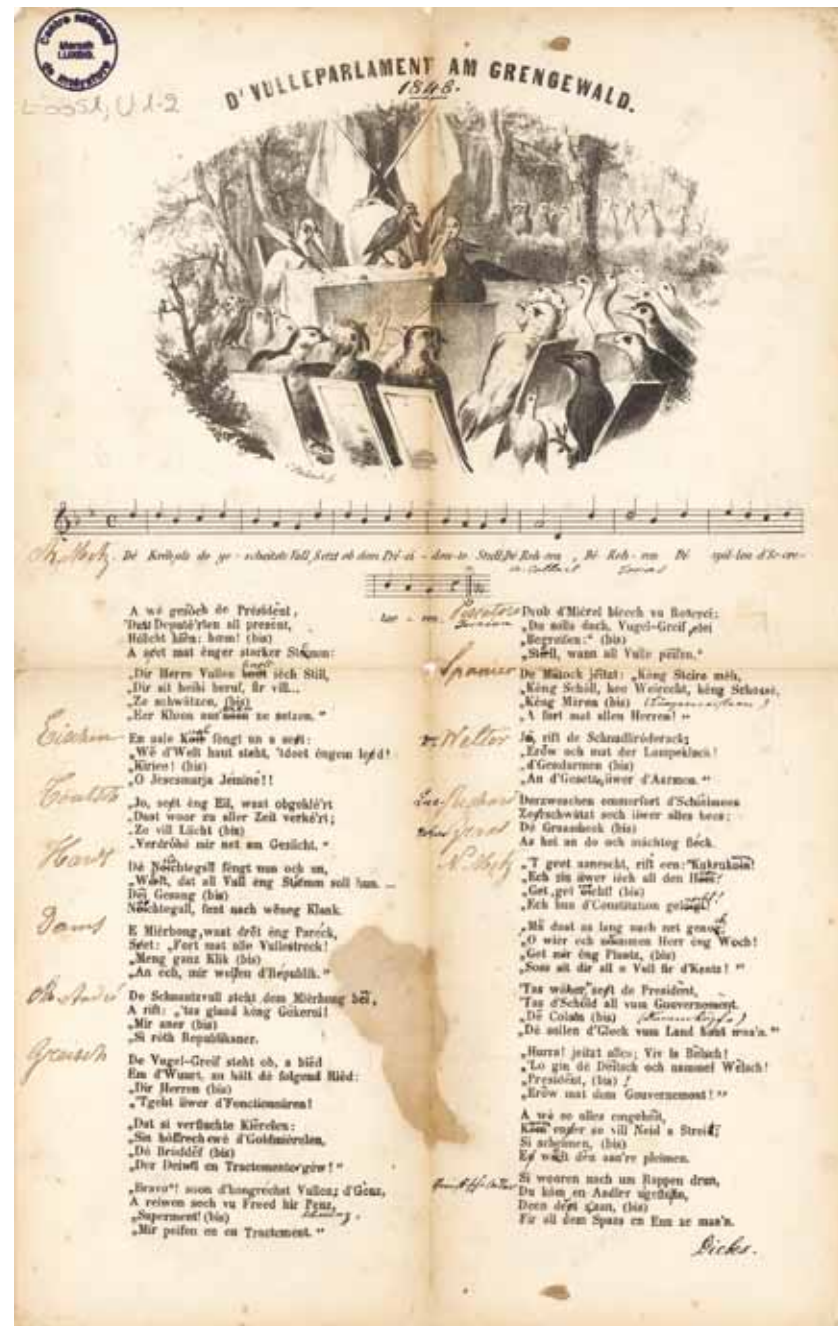 Centre national
Mersch
LUXBG.
de littérature
L-0051; U 1-2
D'VULLEPARLAMENT AM GRENGEWALD.
1848.
Th. Metz
Dé Kréhols de ge - scheitste Vull, Setzt ob dem Pré - si - dente - Stull; Dé Roh - ren, Dé Roh - ren Dé spil - len d'Se - cre -
tär - en.
A wé gesôch de Présidént,
'Datt Deputé'rten all present,
Höllcht hién: hœm! (bis)
A séet mat énger starker Stömm:
„Dir Herre Vullen iéch Still,
„Dir sit heihi beruf, fir vill...
„Ze schwätzen, (bis)
„Eer Kloen ze setzen."
Eischen
En aale féngt un a séet:
„Wé d'Welt haut steht, 'tdoet éngem leed!
„Kiriee! (bis)
„O Jesesmarja Jemine!!
„Jo, seet éng Eil, waat obgeklé'rt
„Daat woor zu aller Zeit verké'rt;
„Ze vill Lücht (bis)
„Verdröhé mir net am Gesiicht."
Hardt
Dé Nöichtegall féngt nun och un,
„Wéllt, dat all Vull éng Stömm soll hun...
Dei Gesang (bis)
Nöichtegall, fent nach wéneg Klank.
Dams
E Miérhong, waat dröt éng Paréck,
Séet: „Fort mat alle Vullestreck!
„Meng ganz Klik (bis)
„An ech, mir wellen d'Republik."
André
De Schnautzvull steht dem Miérhong béi,
A rift: „'tas glaad kéng Gökerei!
„Mir aner (bis)
„Si róth Republikaner.
Greisch
De Vugel-Greif steht ob, a biéd
Em d'Wuurt, an hält dé folgend Riéd:
„Dir Herren (bis)
„'Tgeht üwer d'Fonctionnären!
„Dat si verfluchte Kiérelen:
„Sin höffrech ewé d'Goldmiérelen,
„Dé Bröddéf (bis)
„Der Deiwel en Tractementer géw!"
„Bravo"! soon d'hongrechst Vullen; d'Gèns,
A reiwen sech vu Freed hir Penz,
„Saperment! (bis)
„Mir peifen en en Tractement."
Pescatore
Drob d'Miérel bierch vu Roterei:
„Du solls dach, Vugel-Greif,
„Begreifen:" (bis)
„Stéell, wann all Vulle peifen."
Spanier
De Mätock jeitzt: „Kéng Steire méh,
„Kéng Schöll, kee Weirecht, kéng Schossé,
„Kéng Mären (bis)
„A fort mat allen Herren!"
Welter
Jo, rift de Schnadliröderack;
„Eröw och mat der Lampekluck!
„d'Gendarmen (bis)
„An d'Gesetz, üwer d'Aarmen."
Richard
Derzweschen emmerfort d'Schielmees
Zerschwätzt sech üwer alles hees;
Dé Graasheck (bis)
As hei an do och mächteg Beck.
N. Metz
„'T geet aanescht, rift een: "Kukrukuu!
„Ech zin üwer iéch all den Huet!
„Get, get (bis)
„Ech hun d'Constitution
„Mä daat as lang nach net genoch
„O wier ech nömmen Herr éng Woch!
„Get mir éng Plaatz, (bis)
„Soss sit dir all e Vull fir d'Kaatz!"
'Tas wöher, seet de President,
'Tas d'Schöld all vum Gouvernement.
„Dé Colain (bis)
„Dé sollen d'Glock vum Land haut
„Hurra! jeitzt alles; Viv la Belsch!
„'Lo gin de Deitsch och nammel Wélsch!
„President, (bis) !
„Eröw mat dem Gouvernement!"
A wé so alles eugeheit,
Kóm énner so vill Neid a Streit,
Si scheinen, (bis)
En wéllt dén aan're pleimen.
Si wooren nach um Rappen drun,
Du kóm en Aadler
Deen déet (bis)
Fir all dem Spaas en Enn ze maa'n.
Dicks.